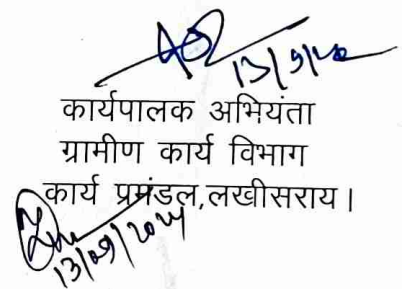 13/9/24
कार्यपालक अभियंता
ग्रामीण कार्य विभाग
कार्य प्रमंडल,लखीसराय।
13/09/2024